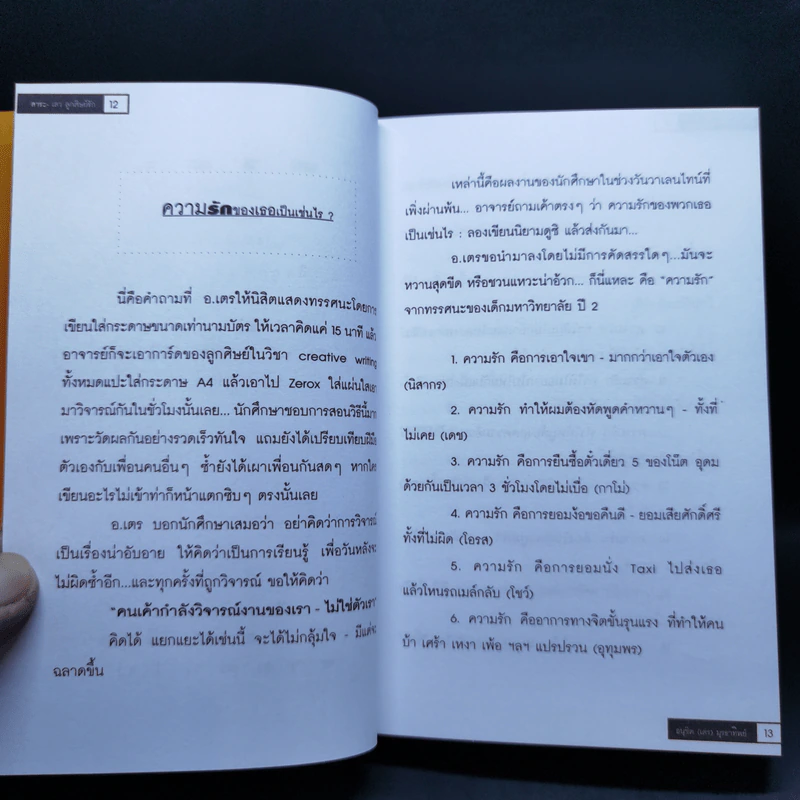 12
ความรักของเธอเป็นเช่นไร ?
นี่คือคำถามที่ อ.เตรให้นิสิตแสดงทรรศนะโดยการ
เขียนใส่กระดาษขนาดเท่านามบัตร ให้เวลาคิดแค่ 15 นาที แล้ว
อาจารย์ก็จะเอาการ์ดของลูกศิษย์ในวิชา creative writting
ทั้งหมดแปะใส่กระดาษ A4 แล้วเอาไป Zerox ใส่แผ่นใสเอา
มาวิจารณ์กันในชั่วโมงนั้นเลย... นักศึกษาชอบการสอนวิธีนี้มาก
เพราะวัดผลกันอย่างรวดเร็วทันใจ แถมยังได้เปรียบเทียบฝีมือ
ตัวเองกับเพื่อนคนอื่นๆ ซ้ำยังได้เผาเพื่อนกันสดๆ หากใคร
เขียนอะไรไม่เข้าท่าก็หน้าแตกซิบๆ ตรงนั้นเลย
อ.เตร บอกนักศึกษาเสมอว่า อย่าคิดว่าการวิจารณ์
เป็นเรื่องน่าอับอาย ให้คิดว่าเป็นการเรียนรู้ เพื่อวันหลังจะ
ไม่ผิดซ้ำอีก...และทุกครั้งที่ถูกวิจารณ์ ขอให้คิดว่า
"คนเค้ากำลังวิจารณ์งานของเรา - ไม่ใช่ตัวเรา"
คิดได้ แยกแยะได้เช่นนี้ จะได้ไม่กลุ้มใจ - มีแต่จะ
ฉลาดขึ้น
เหล่านี้คือผลงานของนักศึกษาในช่วงวันวาเลนไทน์ที่
เพิ่งผ่านพ้น... อาจารย์ถามเค้าตรงๆ ว่า ความรักของพวกเธอ
เป็นเช่นไร : ลองเขียนนิยามดูซิ แล้วส่งกันมา...
อ.เตรขอนำมาลงโดยไม่มีการคัดสรรใดๆ...มันจะ
หวานสุดขีด หรือชวนแหวะน่าอ้วก... ก็นี่แหละ คือ "ความรัก"
จากทรรศนะของเด็กมหาวิทยาลัย ปี 2
1. ความรัก คือการเอาใจเขา - มากกว่าเอาใจตัวเอง
(นิสากร)
2. ความรัก ทำให้ผมต้องหัดพูดคำหวานๆ - ทั้งที่
ไม่เคย (เดช)
3. ความรัก คือการยืนซื้อตั๋วเดี่ยว 5 ของโน๊ต อุดม
ด้วยกันเป็นเวลา 3 ชั่วโมงโดยไม่เบื่อ (กาโม่)
4. ความรัก คือการยอมง้อขอคืนดี - ยอมเสียศักดิ์ศรี
ทั้งที่ไม่ผิด (โอรส)
5. ความรัก คือการยอมนั่ง Taxi ไปส่งเธอ
แล้วโหนรถเมล์กลับ (โชว์)
6. ความรัก คืออาการทางจิตขั้นรุนแรง ที่ทำให้คน
บ้า เศร้า เหงา เพ้อ ฯลฯ แปรปรวน (อุทุมพร)
13